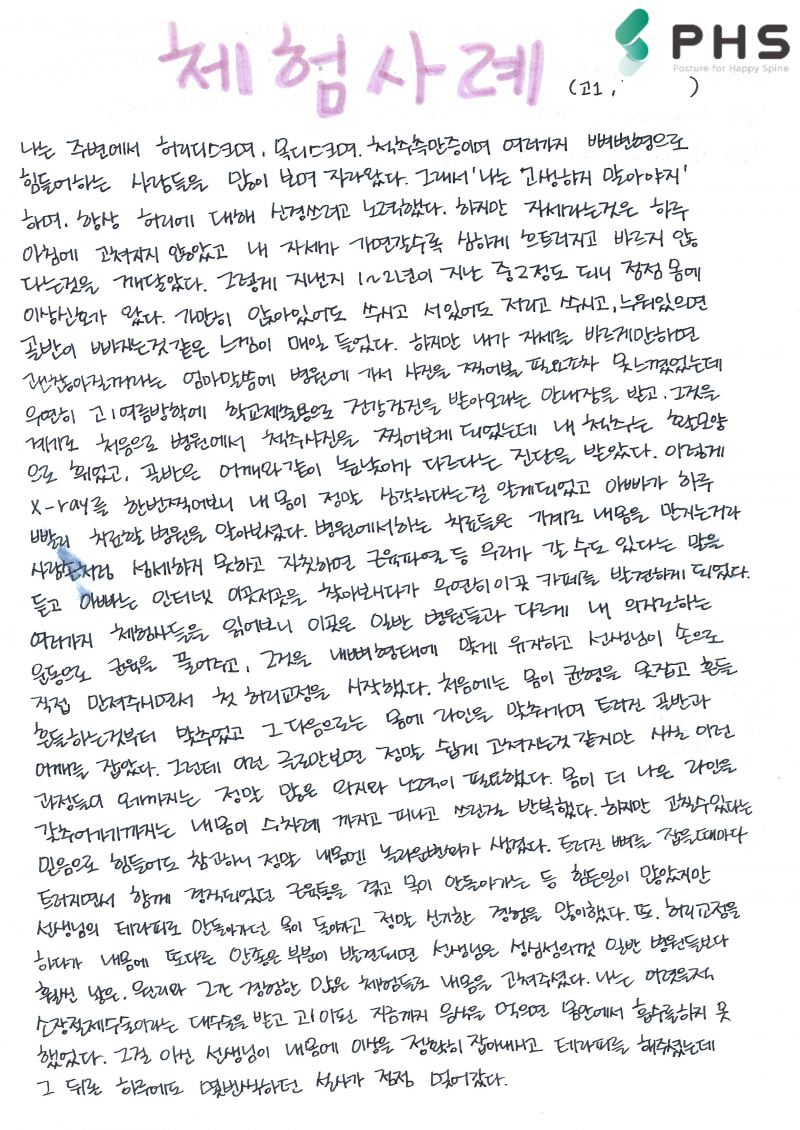 체험사례
PHS
Posture for Happy Spine
(고1, )
나는 주변에서 허리디스크며, 목디스크며, 척추측만증이며 여러가지 뼈변형으로
힘들어하는 사람들을 많이 보며 자라왔다. 그래서 '나는 고생하지 말아야지'
하며, 항상 허리에 대해 신경쓰려고 노력했다. 하지만 자세라는것은 하루
아침에 고쳐지지 않았고 내 자세가 가면갈수록 심하게 흐트러지고 바르지 않
다는것을 깨달았다. 그렇게 지낸지 1~2년이 지난 중2정도 되니 점점 몸에
이상신호가 왔다. 가만히 앉아있어도 쑤시고 서있어도 저리고 쑤시고, 누워있으면
골반이 빠지는것같은 느낌이 매일 들었다. 하지만 내가 자세를 바르게만하면
괜찮아질꺼라는 엄마말씀에 병원에 가서 사진을 찍어볼 필요조차 못느꼈었는데
우연히 고1여름방학에 학교제출용으로 건강검진을 받아오라는 안내장을 받고, 그것을
계기로 처음으로 병원에서 척추사진을 찍어보게 되었는데 내 척추는 활모양
으로 휘었고, 골반은 어깨와같이 높낮이가 다르다는 진단을 받았다. 이렇게
X-ray를 한번찍어보니 내몸이 정말 심각하다는걸 알게되었고 아빠가 하루
빨리 치료할 병원을 알아보셨다. 병원에서하는 치료들은 기계로 내몸을 만지는거라
사람손처럼 섬세하게 못하고 자칫하면 근육파열 등 무리가 갈 수도 있다는 말을
듣고 아빠는 인터넷 이곳저곳을 찾아보시다가 우연히 이곳 카페를 발견하게 되었다.
여러가지 체험사들을 읽어보니 이곳은 일반 병원들과 다르게 내 의지로하는
운동으로 근육을 풀어주고, 그것을 내뼈형태에 맞게 유지하고 선생님이 손으로
직접 만져주시면서 첫 허리교정을 시작했다. 처음에는 몸이 균형을 못잡고 흔들
흔들하는것부터 맞추었고 그 다음으로는 몸에 라인을 맞추어가며 틀어진 골반과
어깨를 잡았다. 그런데 이런 글로만보면 정말 쉽게 고쳐지는것 같겠지만 사실 이런
과정들이 오기까지는 정말 많은 의지와 노력이 필요했다. 몸이 더 나은 라인을
갖추어가기까지는 내몸이 수차례 까지고 피나고 쓰린걸 반복했다. 하지만 고칠수있다는
믿음으로 힘들어도 참고하니 정말 내몸엔 놀라운변화가 생겼다. 틀어진 뼈를 잡을때마다
틀어지면서 함께 경직되었던 근육통을 겪고 목이 안돌아가는 등 힘든일이 많았지만
선생님의 테라피로 안돌아가던 목이 돌아가고 정말 신기한 경험을 많이했다. 또, 허리교정을
하다가 내몸에 또다른 안좋은 부분이 발견되면 선생님은 성심성의껏 일반 병원들보다
훨씬 낳은, 원리와 그간 경험한 많은 체험들로 내몸을 고쳐주셨다. 나는 어렸을적
소장절제수술이라는 대수술을 받고 고1이된 지금까지 음식을 먹으면 몸안에서 흡수를하지 못
했었다. 그걸 아신 선생님이 내몸에 이상을 정확히 잡아내시고 테라피를 해주셨는데
그 뒤로 하루에도 몇번씩하던 설사가 점점 멎어갔다.